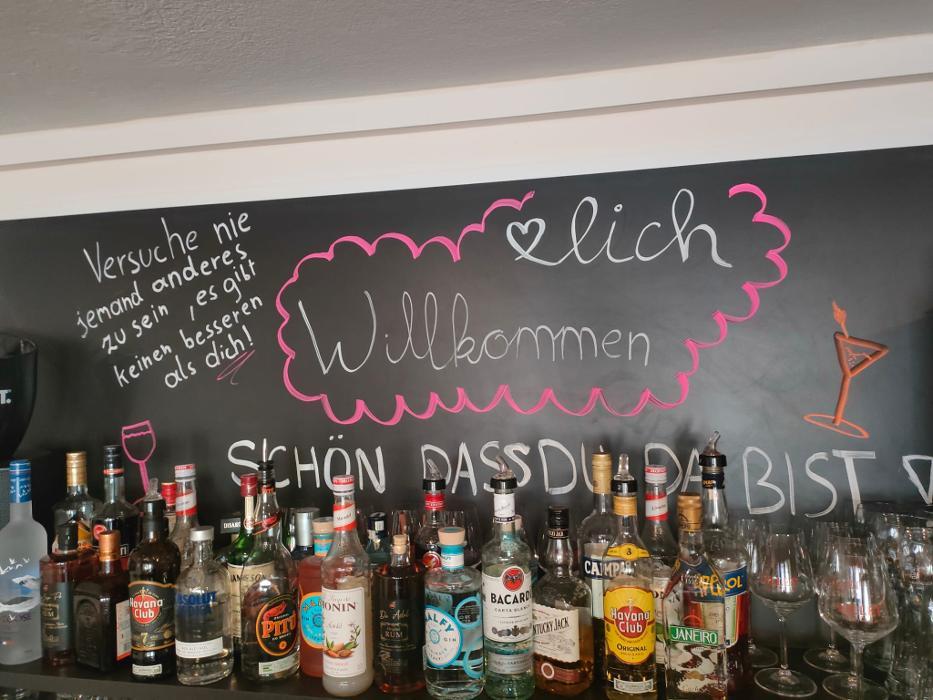 Versuche nie
jemand anderes
zu sein, es gibt
keinen besseren
als dich!
♡lich
Willkommen
SCHÖN DASS DU DA BIST
Havana
Club
7
ABSOLUT
JAMESON
PITÚ
MONIN
RUM
MALFY
GIN
BACARDI
CARTA BLANCA
KENTUCKY JACK
CAMPARI
3
Havana
Club
ORIGINAL
APEROL
JANEIRO